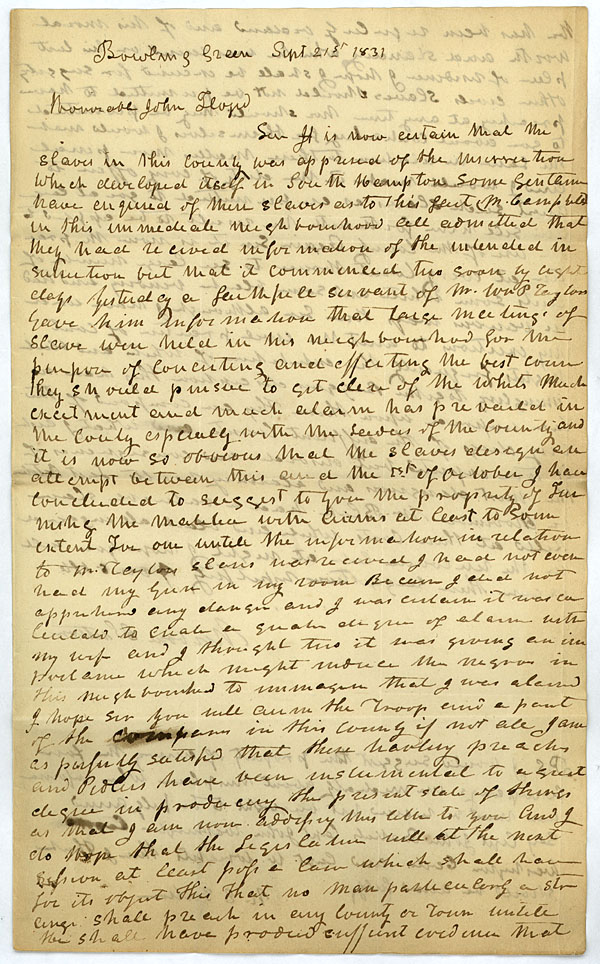 Bowling Green Sept 21st 1831
Honorable John Floyd
Sir It is now certain that the
slaves in this County was apprised of the insurrection
which developed itself in South Hampton Some Gentlemen
have enquired of their slaves as to this fact Mr. Campbell
in this immediate neighbourhood all admitted that
they had recived information of the intended in
surrection but that it commenced too soon by eight
days Yesterday a faithfull servant of Mr. Wm P Taylors
gave him information that large meetings of
slave were held in his neighbourhood for the
purpose of concerting and effecting the best course
they should pursue to get clear of the whites Much
excitment and much alarm has prevaild in
the County espcially with the Ladies of the County and
it is now so obvious that the slaves design an
attempt between this and the 1st of October I have
concluded to suggest to you the propriety of Fur
nishg the Malitia with arms at least to some
extent For one untill the information in relation
to Mr. Taylors slaves was received I had not even
had my Gun in my room Because I did not
apprehend any danger and I was certain it was ca
lculatd to create a greater degree of alarm with
my wife and I thought too it was giving an im
portance which might induce the negros in
this neighbourhood to immagine that I was alarmd
I hope sir you will arm the Troop and a part
of the companes in this County if not all I am
as perfectly satisfid that these preaches
and Pedlers have been instrumental to a great
degree in producing the present state of things
as that I am now addressg this letter to you And I
do hope that the Legislature will at the next
session at least pass a law which shall have
for its object this that no man particularly a stra
nger shall preach in any County or Town untill
he shall have produced suffient evidence that